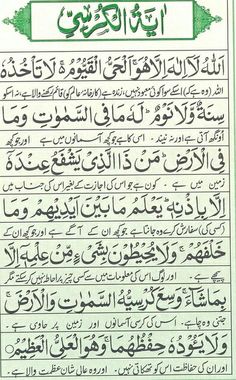 اٰيَةُ الْكُرْسِيّ
اَللّٰهُ لَاۤ اِلٰهَ اِلَّا هُوَ ۚ اَلْحَيُّ الْقَيُّوْمُ ۚ لَا تَاْخُذُهٗ
اللہ (وہ ہے کہ) اسکے سوا کوئی معبود نہیں، زندہ ہے (کارخانۂ عالم کو) قائم رکھنے والا ہے، نہ اسکو
سِنَةٌ وَّلَا نَوْمٌ ؕ لَهٗ مَا فِى السَّمٰوٰتِ وَمَا
اونگھ آتی ہے اور نہ نیند۔ اسی کا ہے جو کچھ آسمانوں میں ہے اور جو کچھ
فِى الْاَرْضِ ؕ مَنْ ذَا الَّذِىْ يَشْفَعُ عِنْدَهٗۤ
زمین میں ہے۔ کون ہے جو اس کی اجازت کے بغیر اس کی جناب میں
اِلَّا بِاِذْنِهٖ ؕ يَعْلَمُ مَا بَيْنَ اَيْدِيْهِمْ وَمَا
(کسی کی) سفارش کر سکے وہ جانتا ہے جو کچھ ان کے آگے ہے اور جو کچھ ان کے
خَلْفَهُمْ ۚ وَلَا يُحِيْطُوْنَ بِشَىْءٍ مِّنْ عِلْمِهٖۤ اِلَّا
پیچھے ہے۔ اور لوگ اس کی معلومات میں سے کسی چیز پر احاطہ نہیں کر سکتے مگر
بِمَا شَآءَ ۚ وَسِعَ كُرْسِيُّهُ السَّمٰوٰتِ وَالْاَرْضَ ۚ
جتنی وہ چاہے۔ اس کی کرسی آسمانوں اور زمین پر حاوی ہے۔
وَلَا يَـُٔوْدُهٗ حِفْظُهُمَا ۚ وَهُوَ الْعَلِىُّ الْعَظِيْمُ
اور ان کی حفاظت اس کو تھکاتی نہیں۔ اور وہ عالی شان عظمت والا ہے۔